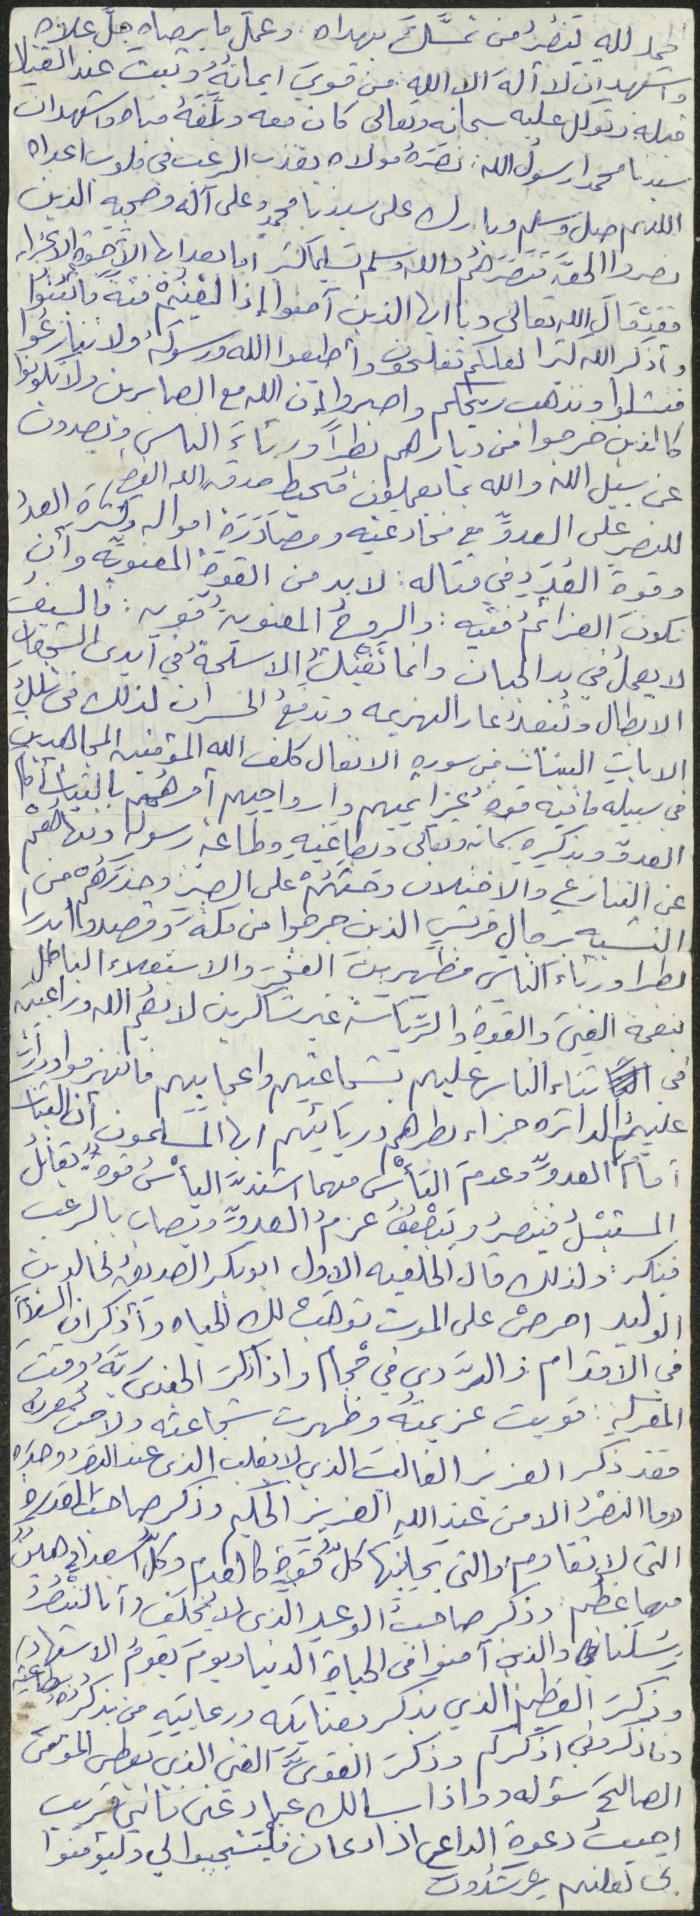 الحمد لله ينصر من تمسَّكَ بهداه: وعمل ما يرضاه جلَّ علاه
واشهد ان لا اله الا الله: من قوي ايمانهُ وثبت عند القتال
قبله وتوكل عليه سبحانه وتعالى كان معه وبلَّغهُ مناه واشهد ان
سيدنا محمدا رسول الله: نصَرهُ مولاه بقذف الرعب في قلوب اعداه
اللهم صل وسلم وبارك على سيدنا محمدٍ وعلى آله وصحبه الذين
نصروا الحقَّ فنصَرهُم الله وسلم تسليما كثيرا اما بعد ايها الاخوة الاعزاء
فقدْ قالَ الله تعالى (يا ايها الذين آمنوا إذا لقيتُمْ فئةً فاثبُتُوا
واذكر الله كثيرا لعلكم تفلحون وأطيعوا الله ورسولَه ولا تنازعُوا
فتفشلوا وتذهب ريحكم واصبروا إنَّ الله مع الصابرين ولا تكونوا
كالذين خرجوا من ديارهم بطراً ورئاءَ الناس ويصدون
عن سبيل الله والله بما يعملون مُحيط) صدق الله العظيم
للنصر على العدوِّ مع مخادعته ومصادَرَةِ امواله وكثرةِ العددِ
وقوةِ العُدَدِ في قتاله: لابد من القوةِ المعنويَّة وأن
تكونَ العزائمُ فتيَّه: والروحُ المعنويةُ قويه: فالسيفُ
لا يعملُ في يد الجبان وانما تَقْتِلُ الاسلحةُ في أيدي الشجعان
الابطال وتُبعدُ عار الهزيمه وتدفعُ الخسران لذلك في تلك
الايات البينات من سورة الانفال كلف الله المؤمنين المجاهدين
في سبيله ما فيه قوةُ عزائمهم وارواحهم أمرهُم بالثبات أمام
العدوِّ وبذكرِهِ سبحانه وتعالى وبطاعتِهِ وطاعة رسوله ونهاهُمْ
عن التنازعِ والاختلاف وحثَّهُمْ على الصبرِ وحذرَهُمْ من
التشبه برجالِ قريشٍ الذين خرجوا من مكةَ وقصدوا بدرا
بطرا ورئاء الناسِ مظهرينَ الفخْرَ والاستعلاء الباطل
بنعمةِ الغنى والقوة والرِّئاسة غير شاكرين لانعُمِ الله وراغبين
في ثناء الناس عليهم بشجاعتهم واعجابهم فانهزموا ودارت
عليهُمُ الدائره جزاء بطرهم وريائهم ايها المسلمون أن الثبات
أمام العدوِّ وعدمَ اليأسِ مهما اشتدَّ البأسُ قوةٌ يقاتلُ
المستبْسلُ فينصرُ ويَضْعُفُ عزمُ العدوِّ ويصاب بالرعب
فينكسر: ولذلك قال الخليفه الاول ابو بكر الصديق لخالد بن
الوليد احرص على الموت توهبْ لك الحياه وأذكر ان السلامةَ
في الاقدام: والتردي في حْجام واذا ذكرَ الجندي ربَّهُ وقتَ
المعركه: قويت عزيمتهُ وظهرت شجاعته ولاحت
فقد ذكر العزيز الغالبَ الذي لا يغلب الذي عند النصر وحده
(وما النصْرُ الا من عند الله العزيز الحكيم) وذكر صاحبَ القدرةِ
التي لا تقاوم والتي بجانبها كلُّ قوةٍ كالعدم وكلُّ
مهما عظُم: وذكر صاحبَ الوعدِ الذي لا يُخلَف (أنا لننصُرُ
رسُلَنا والذين آمنوا في الحياةِ الدنيا ويومَ يقومُ الاشهاد)
وذكرَ العظيمَ الذي يذكر بعنايته ورعايته من يذكرُهُ بطاعته
(فاذكروني أذكركم) وذكرَ القويَّ الغني الذي يعطى المؤمنَ
الصالحَ سؤله (واذا سالك عبادي عني فاني قريب
اجيبُ دعوةَ الداعي اذا دعان فليَسْتجيبوا لي وليؤمنوا
بي لعلهم يرْشدُون